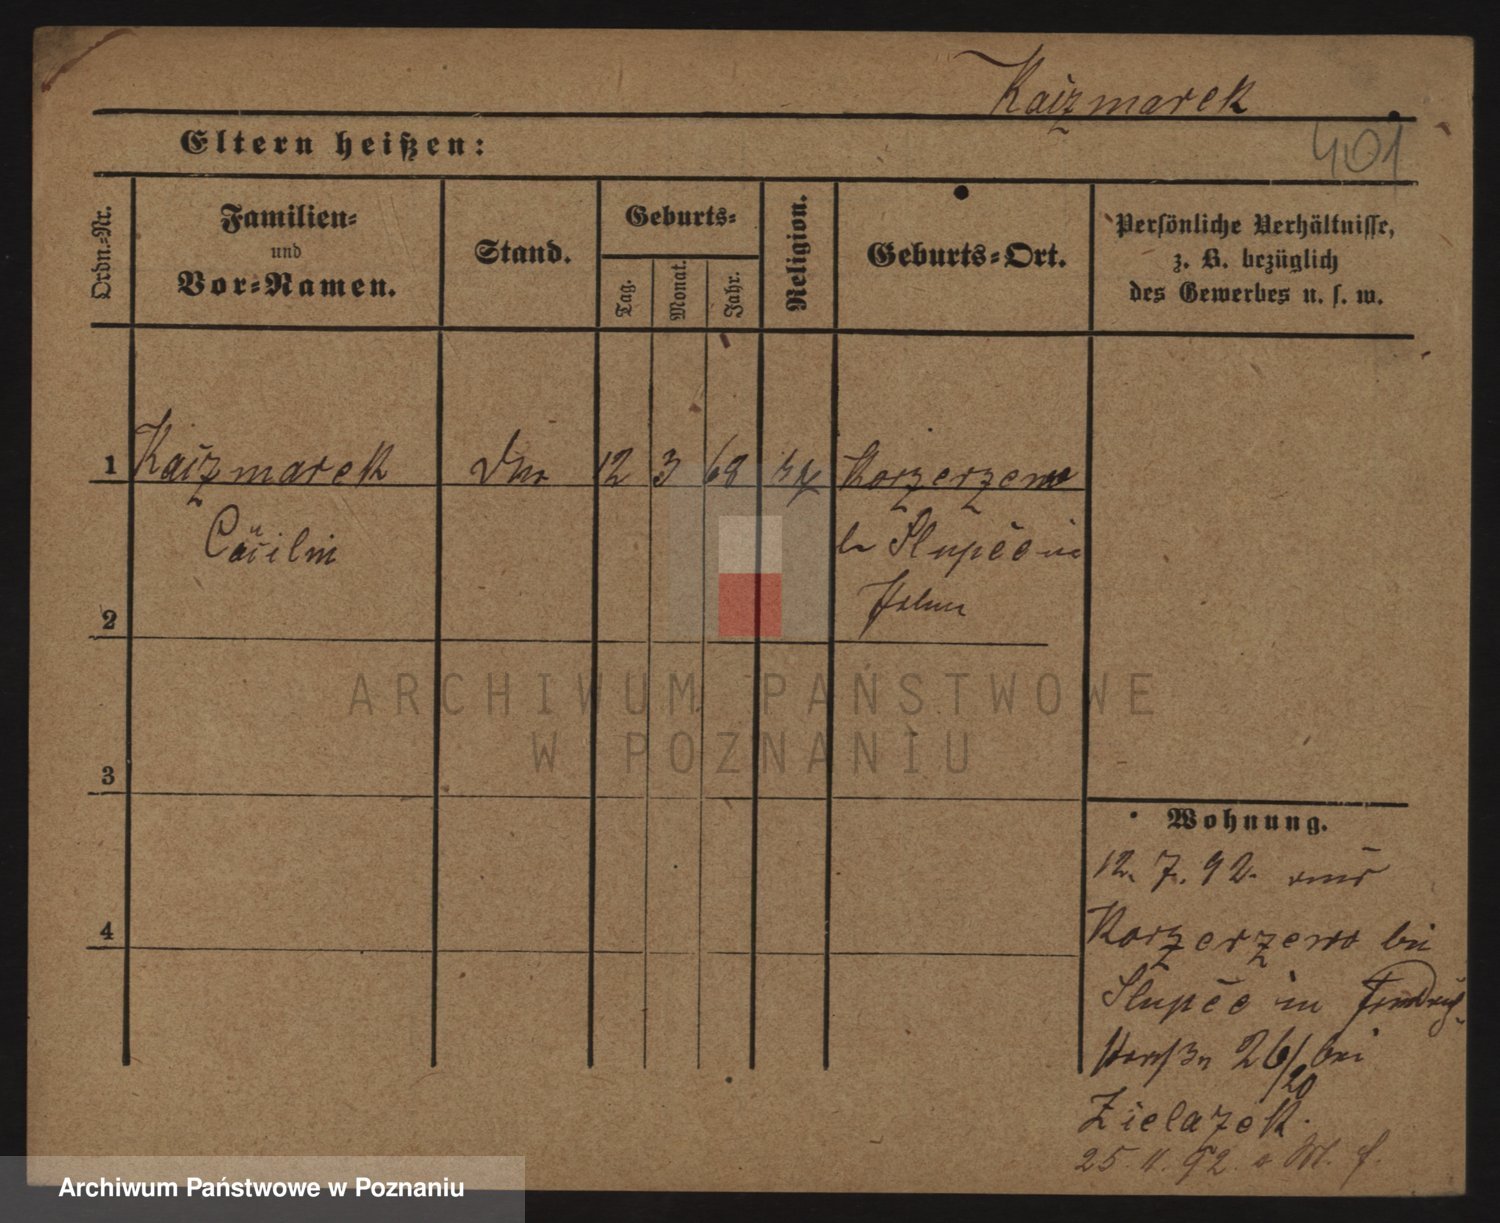 Kaizmarek
401
Eltern heißen:
Ordn.-Nr.
Familien-
und
Vor-Namen.
Stand.
Geburts-
Tag.
Monat.
Jahr.
Religion.
Geburts-Ort.
Persönliche Verhältnisse,
z. B. bezüglich
des Gewerbes u. s. w.
1 Kaizmarek 12 3 68
Cäcilie
b Slupce in
2
ARCHIWUM PAŃSTWOWE
W POZNANIU
3
Wohnung.
12. 7. 92. aus
4
bei
Slupce in
26/20 bei
Zielazek.
25. 11. 92.
Archiwum Państwowe w Poznaniu